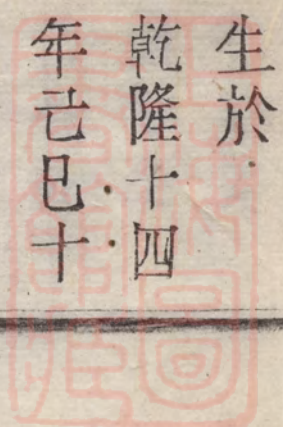 生於
乾隆十四
年己巳十